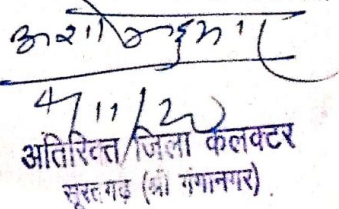 अशोक कुमार
4/11/20
अतिरिक्त जिला कलक्टर
सूरतगढ़ (श्री गंगानगर)